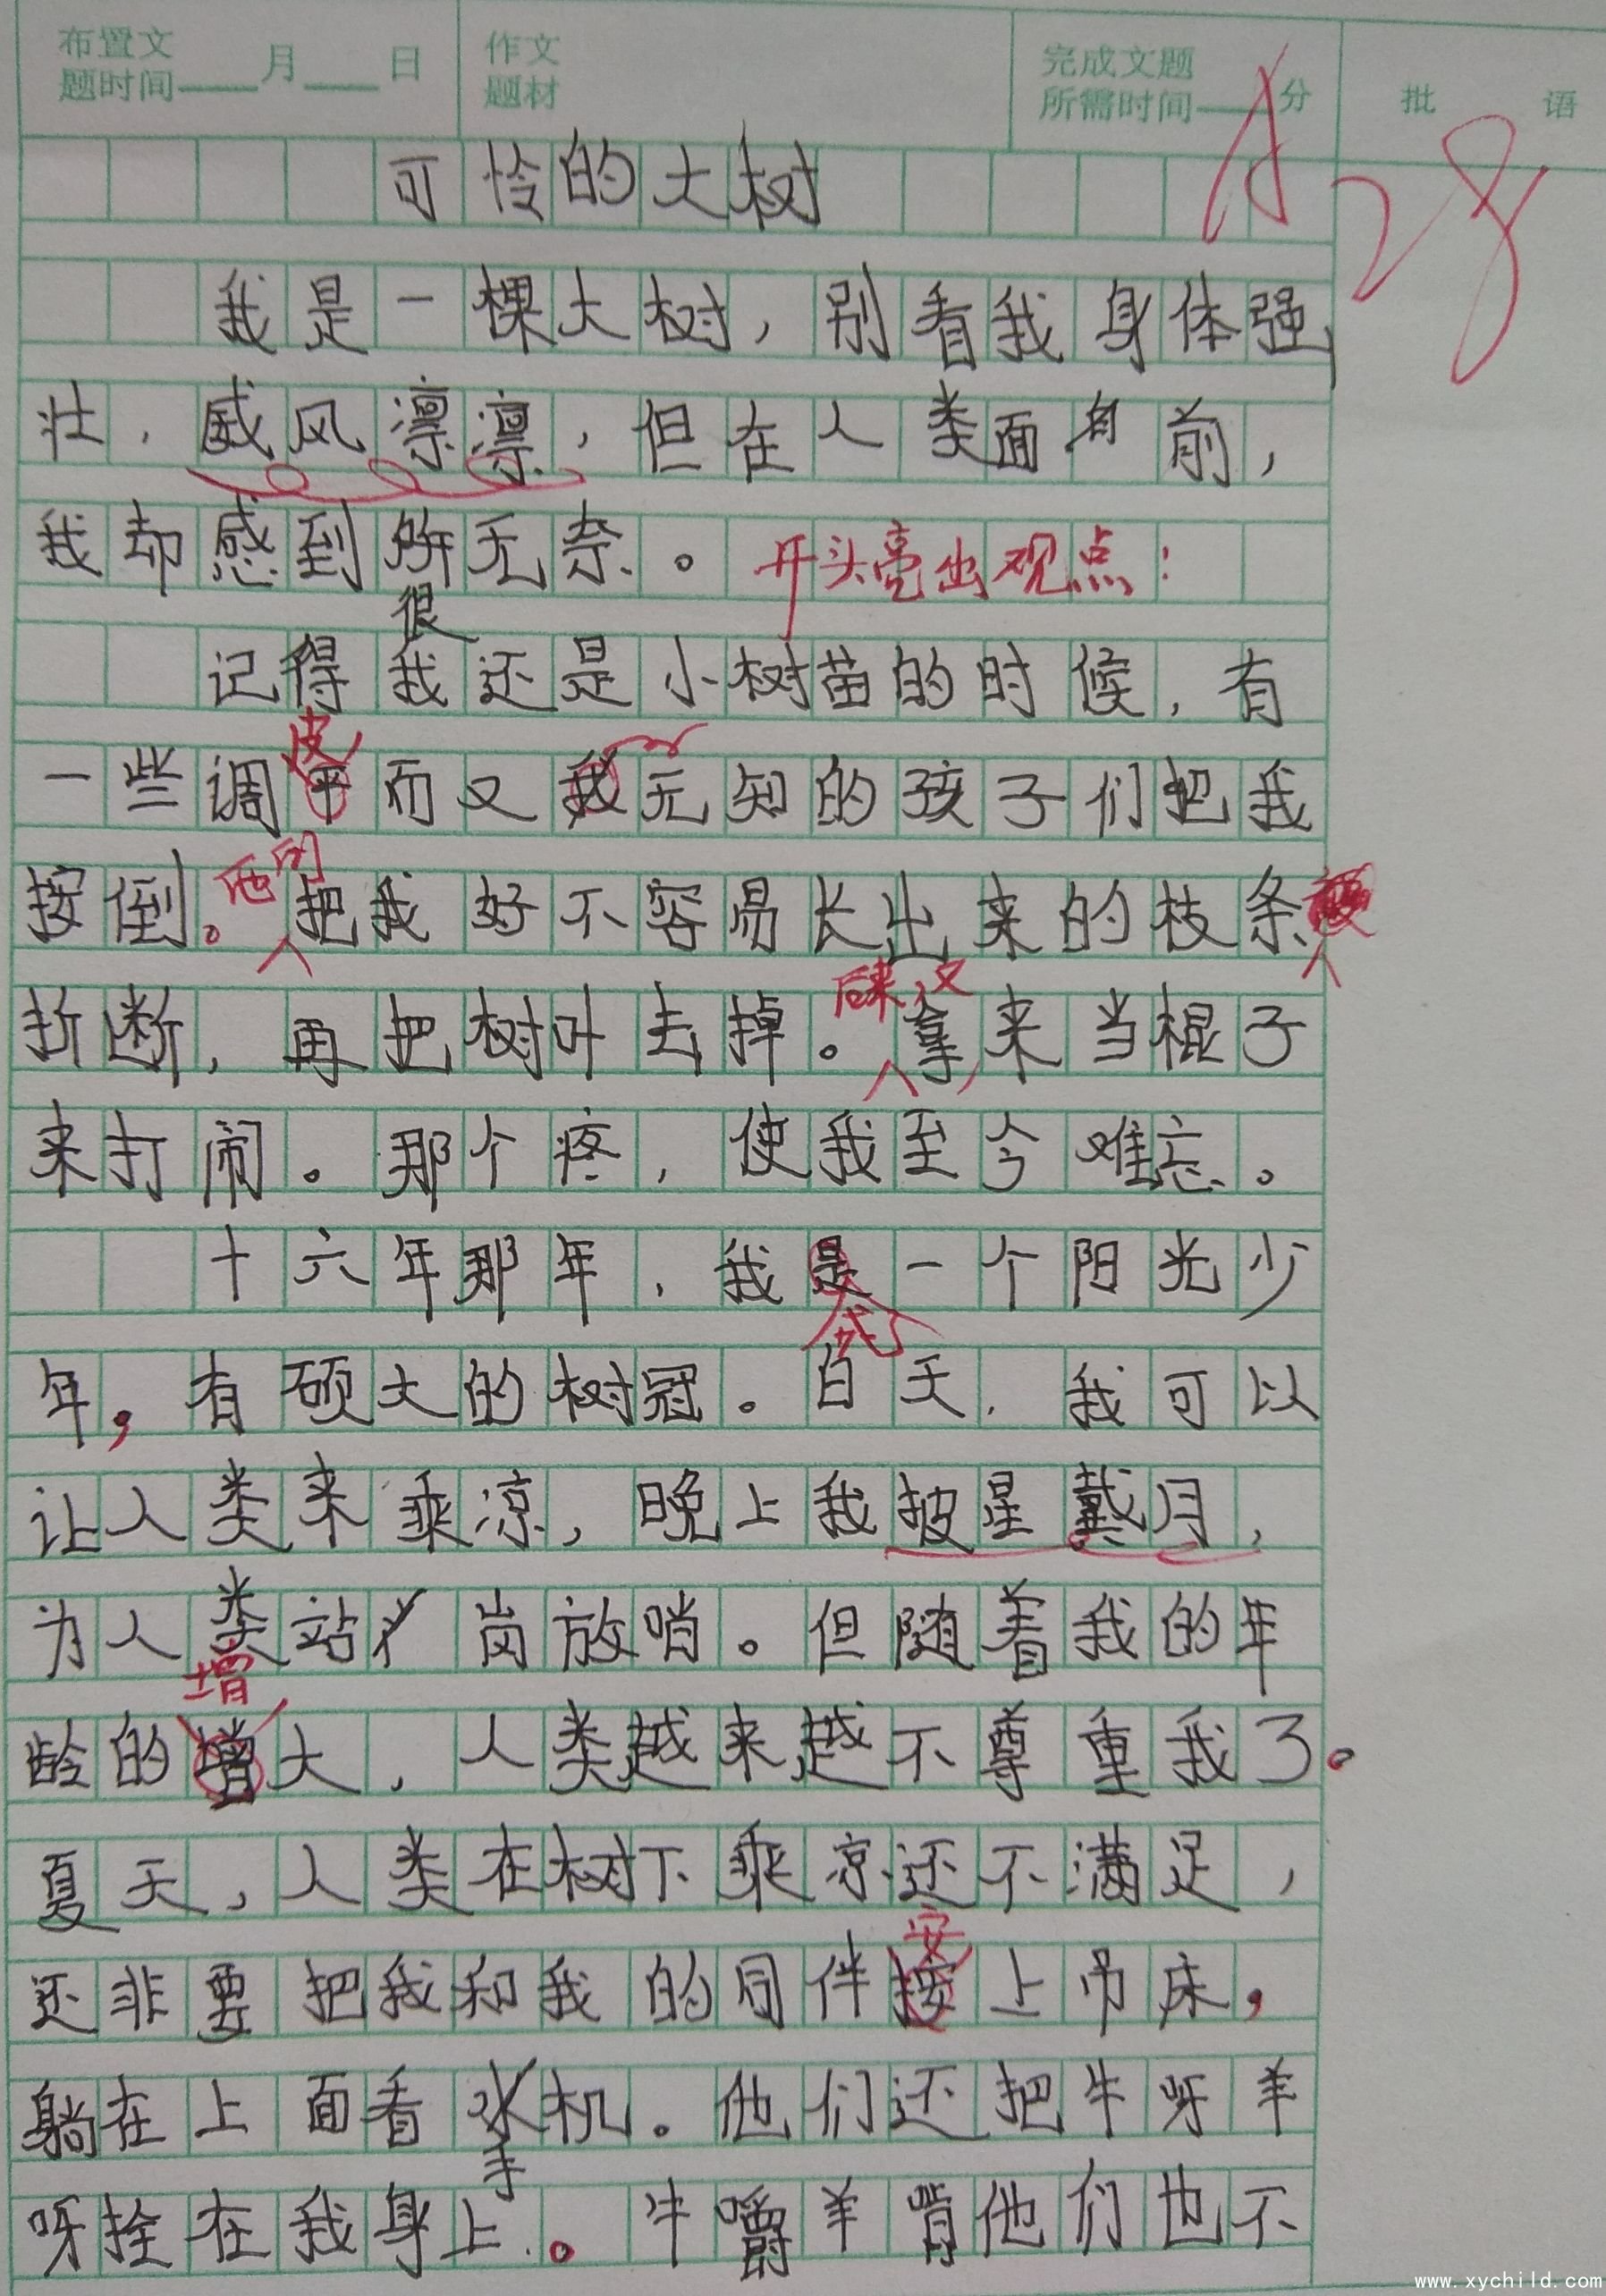 布置文
题时间____月____日
作文
题材
完成文题
所需时间____分
批 语
A
28
可怜的大树
我是一棵大树，别看我身体强
壮，威风凛凛，但在人类面前，
我却感到所无奈。开头亮出观点！
很
记得我还是小树苗的时候，有
皮
一些调平而又我无知的孩子们把我
他们
按倒。把我好不容易长出来的枝条
后来，又
折断，再把树叶去掉。拿来当棍子
来打闹。那个疼，使我至今难忘。
十六年那年，我是一个阳光少
成了
年，有硕大的树冠。白天，我可以
让人类来乘凉，晚上我披星戴月，
为人类站岗放哨。但随着我的年
增
龄的增大，人类越来越不尊重我了。
夏天，人类在树下乘凉还不满足，
安
还非要把我和我的同伴按上吊床，
躺在上面看水机。他们还把牛呀羊
手
呀拴在我身上。牛嚼羊背他们也不
www.xychild.com